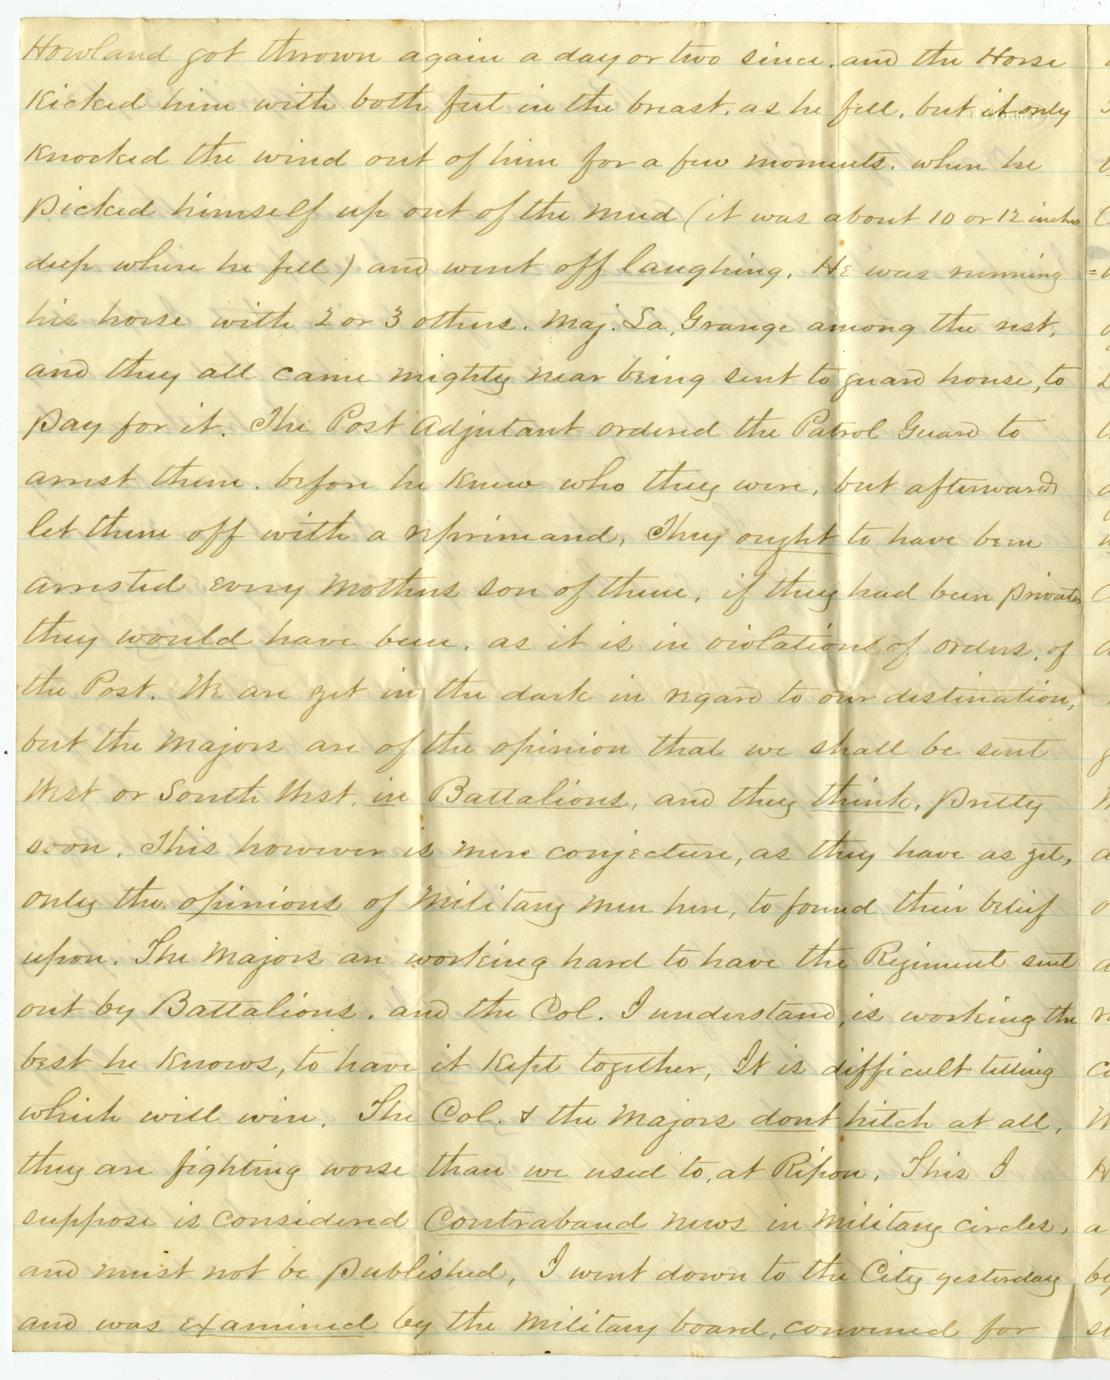 Howland got thrown again a day or two since. and the Horse
Kicked him with both feet in the breast, as he fell, but it only
Knocked the wind out of him for a few moments. when he
picked himself up out of the mud (it was about 10 or 12 inches
deep where he fell) and went off laughing. He was running
his horse with 2 or 3 others. Maj. La, Grange among the rest,
and they all came mighty near being sent to guard house, to
pay for it. The Post Adjutant ordered the Patrol Guard to
arrest them. before he knew who they were, but afterwards
let them off with a reprimand, They ought to have been
arrested every mothers son of them, if they had been privates
they would have been. as it is in violation of orders, of
the Post. We are yet in the dark in regard to our destination,
but the Majors are of the opinion that we shall be sent
West or South West, in Battalions, and they think, pretty
soon. This however is mere conjecture, as they have as yet,
only the opinions of Military men here, to found their belief
upon. The Majors are working hard to have the Regiment sent
out by Battalions. and the Col. I understand, is working the
best he knows, to have it Kept together, It is difficult telling
which will win. The Col. & the Majors dont hitch at all,
they are fighting worse than we used to, at Ripon. This I
suppose is considered Contraband news in Military circles,
and must not be published, I went down to the City yesterday
and was examined by the Military board, convened for